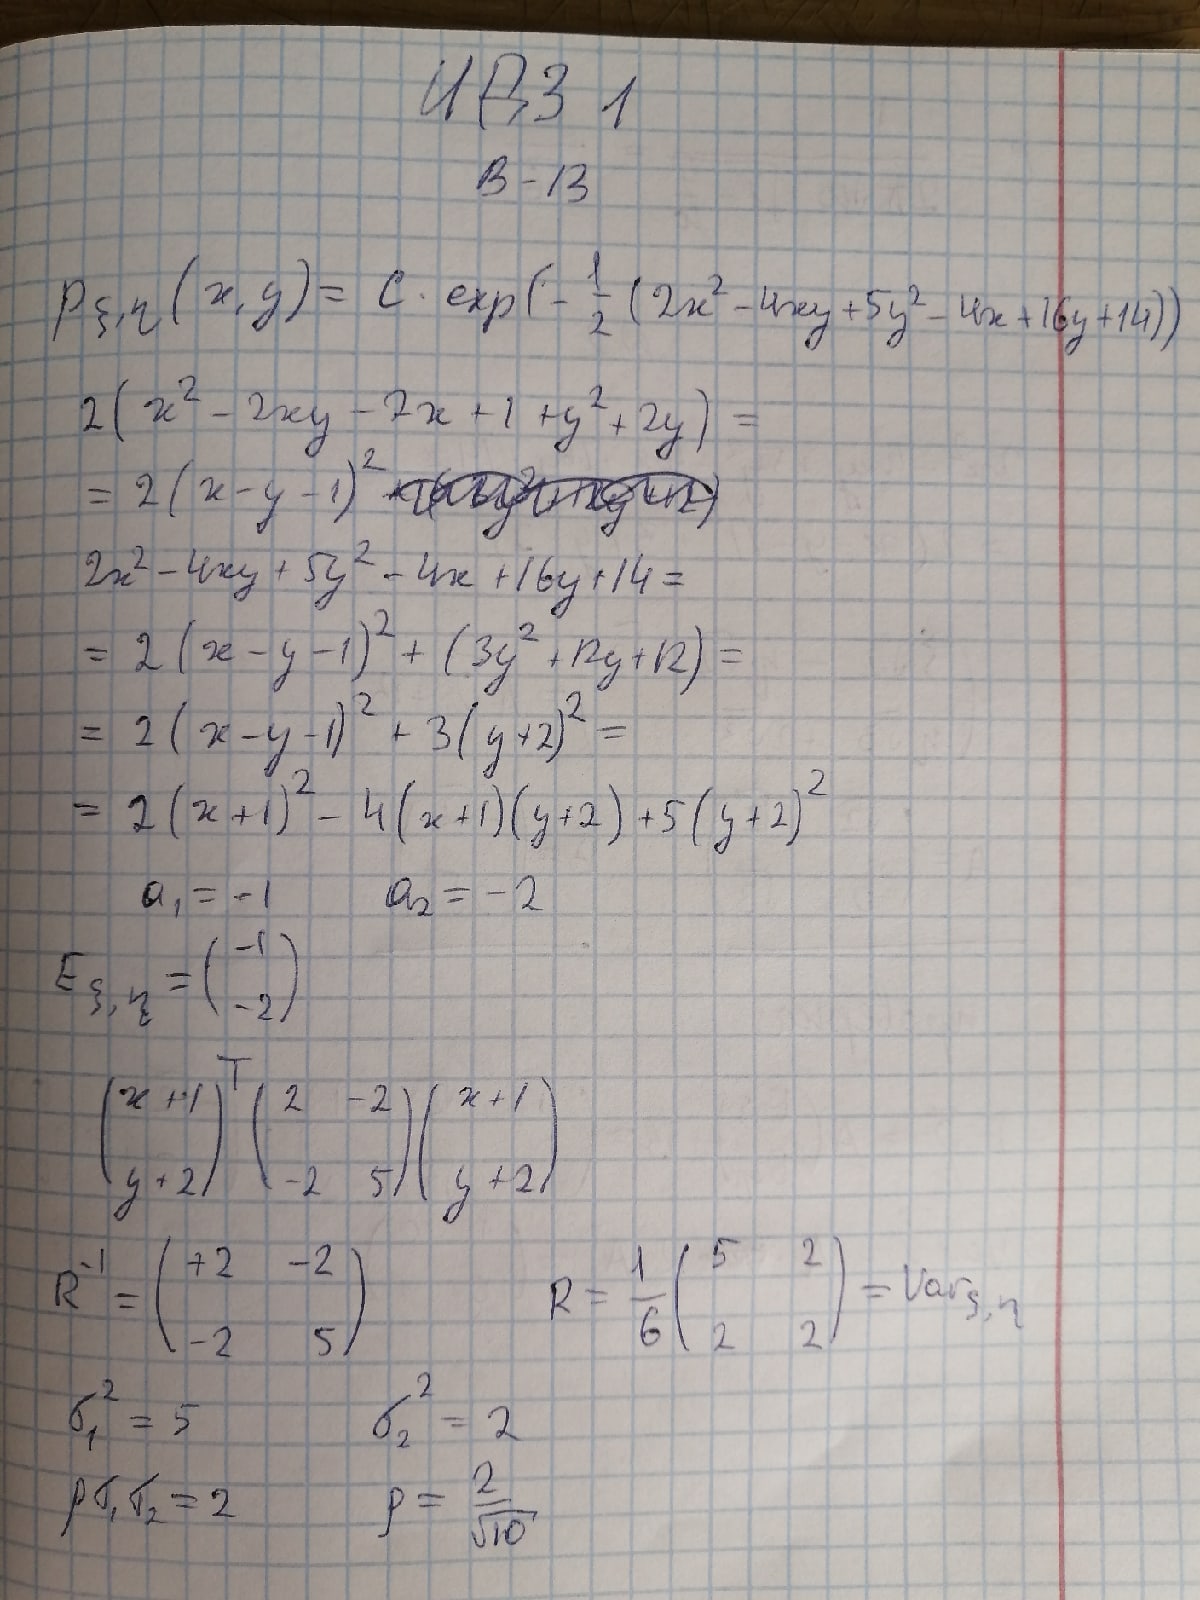 ИДЗ 1
В-13
p_{ξ,η}(x,y) = C · exp(-\frac{1}{2}(2x² - 4xy + 5y² - 4x + 16y + 14))
2(x² - 2xy - 2x + 1 + y² + 2y) =
= 2(x - y - 1)²
2x² - 4xy + 5y² - 4x + 16y + 14 =
= 2(x - y - 1)² + (3y² + 12y + 12) =
= 2(x - y - 1)² + 3(y + 2)² =
= 2(x + 1)² - 4(x + 1)(y + 2) + 5(y + 2)²
a₁ = -1 a₂ = -2
E_{ξ,η} = \begin{pmatrix} -1 \\ -2 \end{pmatrix}
\begin{pmatrix} x + 1 \\ y + 2 \end{pmatrix}^T \begin{pmatrix} 2 & -2 \\ -2 & 5 \end{pmatrix} \begin{pmatrix} x + 1 \\ y + 2 \end{pmatrix}
R^{-1} = \begin{pmatrix} +2 & -2 \\ -2 & 5 \end{pmatrix} R = \frac{1}{6} \begin{pmatrix} 5 & 2 \\ 2 & 2 \end{pmatrix} = Var_{ξ,η}
σ₁² = 5 σ₂² = 2
ρσ₁σ₂ = 2 ρ = \frac{2}{\sqrt{10}}